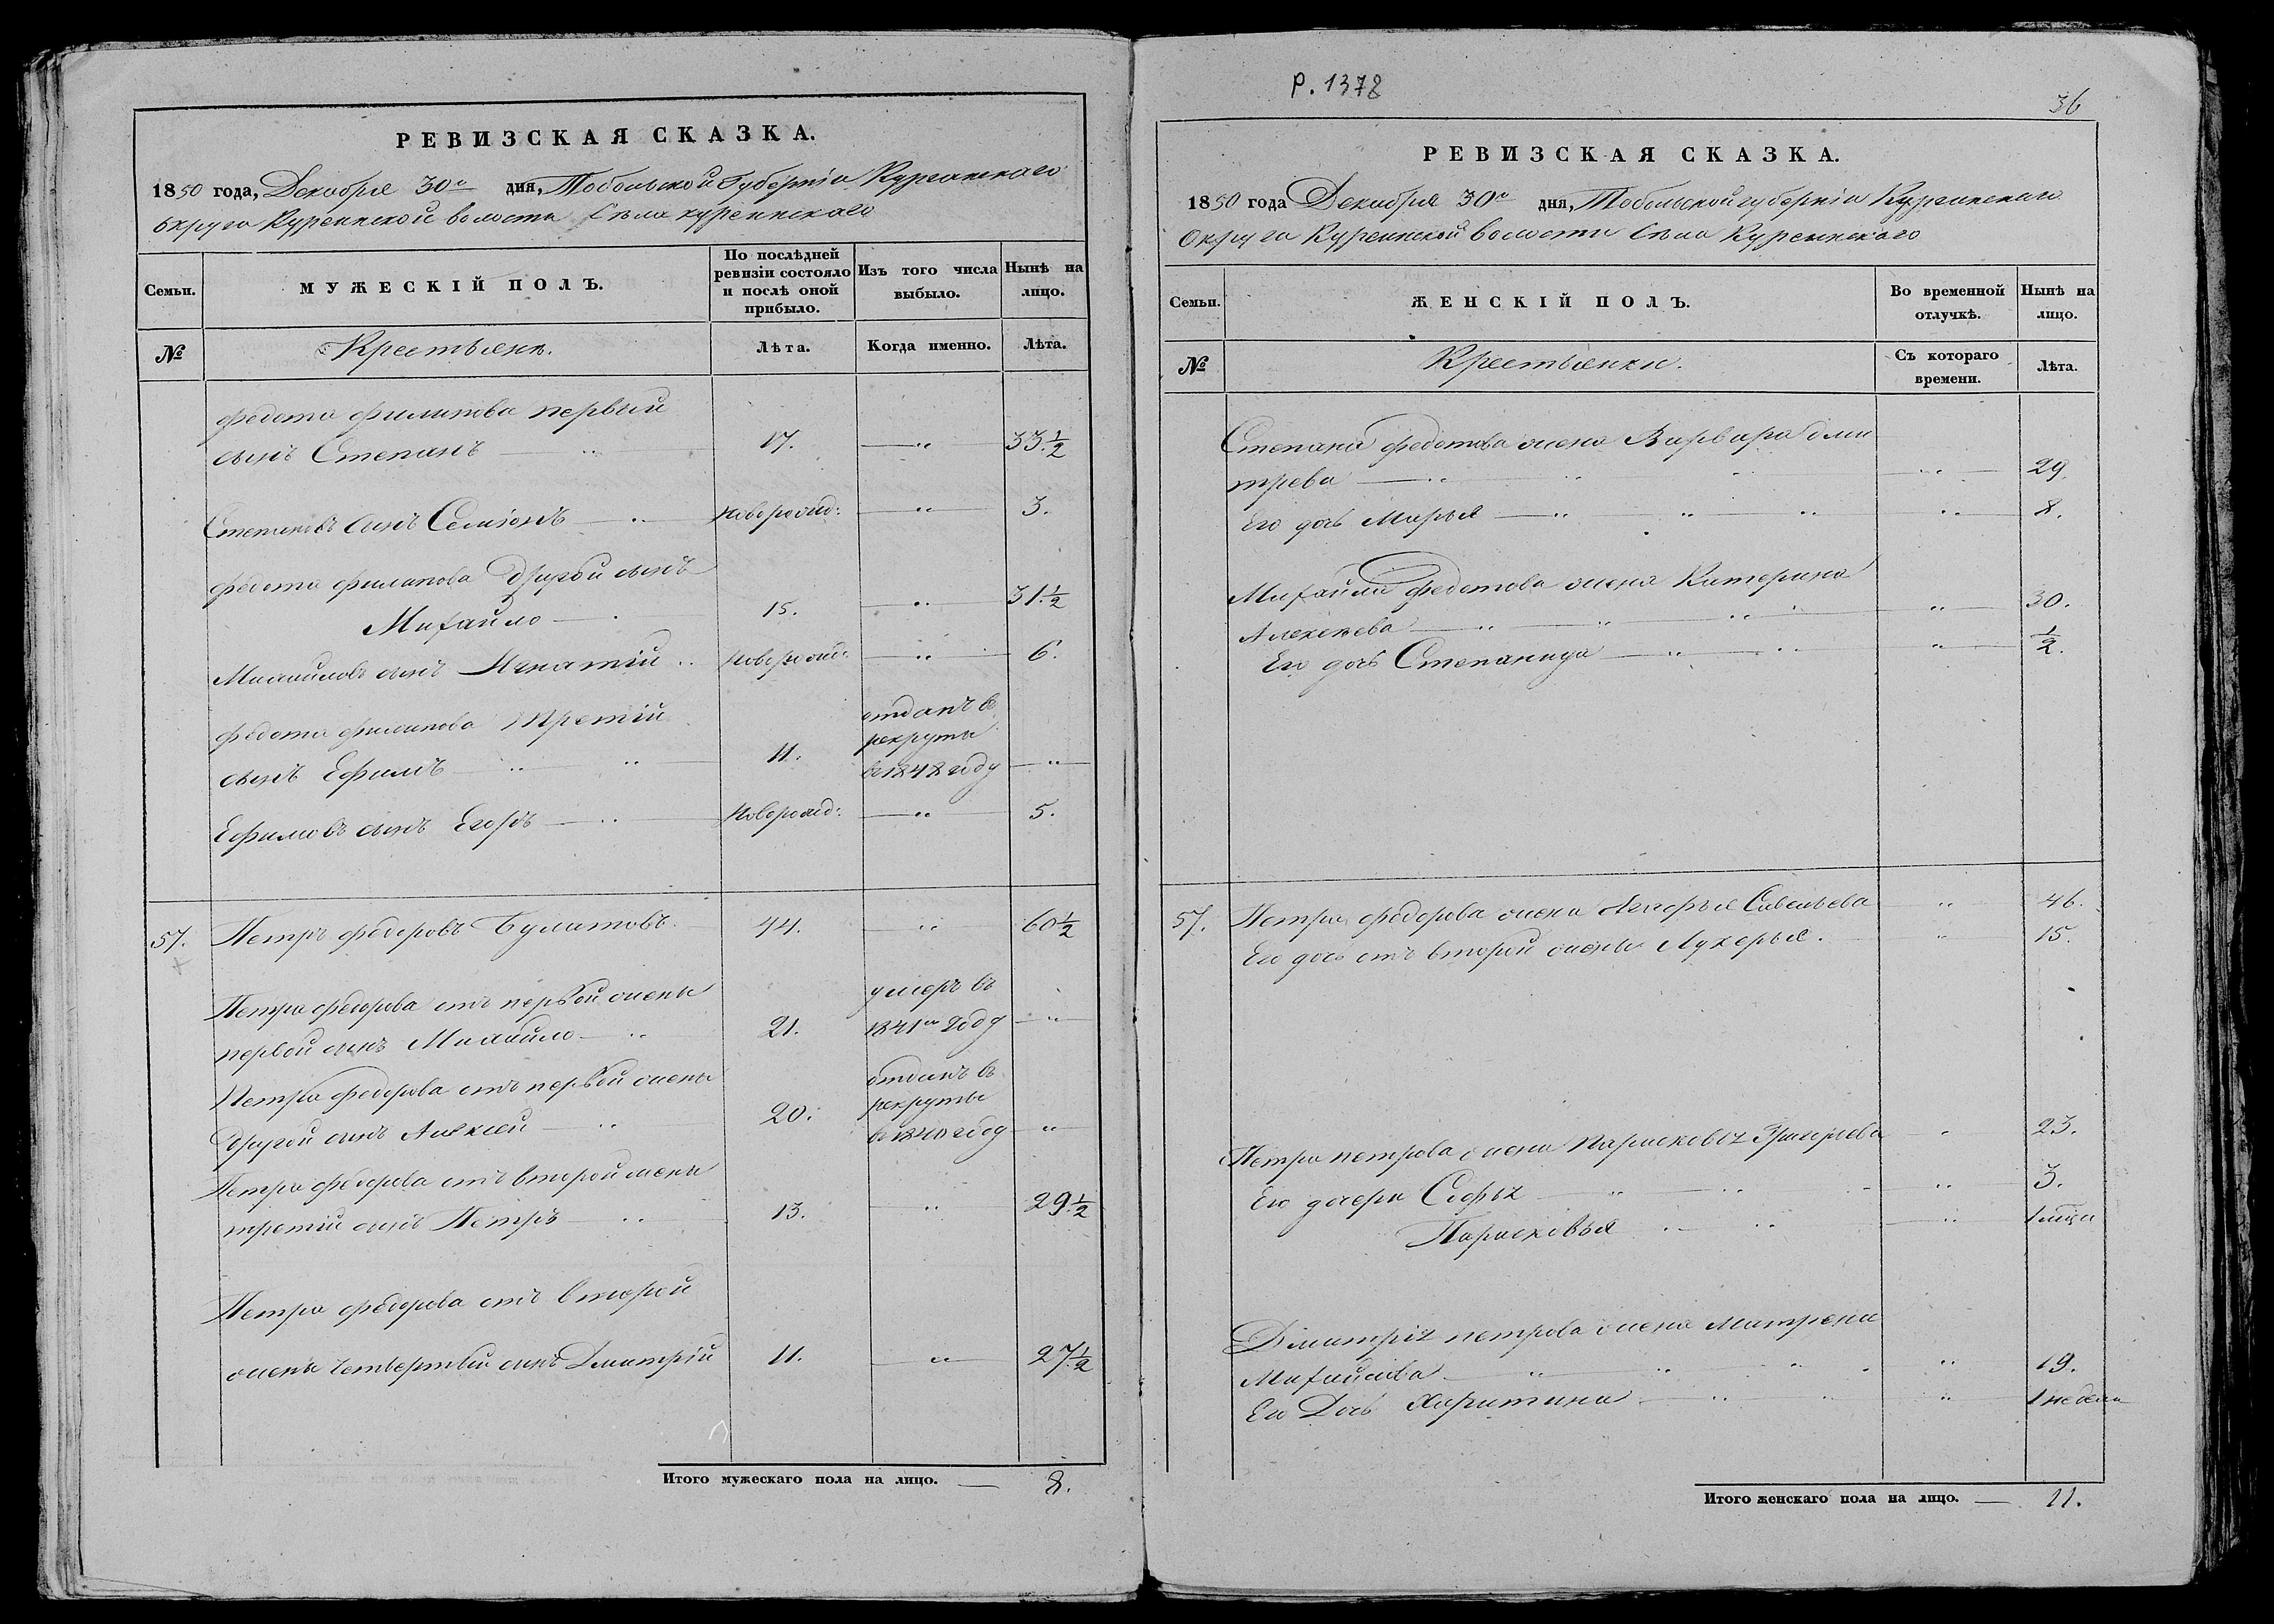 РЕВИЗСКАЯ СКАЗКА.
1850 года, Декабря 30го дня, Тобольской Губерніи Курганскаго
округа Куреинской волости Села куреинскаго
Семьи.
МУЖЕСКІЙ ПОЛЪ.
По послѣдней ревизіи состояло и послѣ оной прибыло.
Изъ того числа выбыло.
Нынѣ на лицо.
№
Крестьянъ.
Лѣта.
Когда именно.
Лѣта.
Федота Филипова первый
сынъ Степанъ — " 17. — " 33 1/2
Степановъ сынъ Семіонъ — " новорожд: — " 3.
Федота Филипова Другой сынъ
Михайло — 15. — " 31 1/2
Михайловъ сынъ Игнатій " новорожд: — " 6.
Федота Филипова Третій
сынъ Ефимъ " " 11. отданъ въ рекруты въ 1848 году — "
Ефимовъ сынъ Егоръ — " Новорожд: — " 5.
57. Петръ Федоровъ Булатовъ. 44. " 60 1/2
Петра Федорова отъ первой жены
первой сынъ Михайло — " 21. умеръ въ 1841м году — "
Петра Федорова отъ первой жены
Другой сынъ Алексей — " 20. отданъ въ рекруты въ 1840 году — "
Петра Федорова отъ второй жены
третій сынъ Петръ — " 13. " 29 1/2
Петра Федорова отъ второй
жены четвертый сынъ Дмитрій 11. — " 27 1/2
Итого мужескаго пола на лицо. — 8.
Р. 1378
36
РЕВИЗСКАЯ СКАЗКА.
1850 года Декабря 30го дня, Тобольской губерніи Курганскаго
Округа Куреинской волости Села Куреинскаго
Семьи.
ЖЕНСКІЙ ПОЛЪ.
Во временной отлучкѣ.
Нынѣ на лицо.
№
Крестьянки.
Съ котораго времени.
Лѣта.
Степана Федотова жена Варвара дми
трева — " " " — " 29.
Его дочь Марья — " " " " 8.
Михайлы Федотова жена Катерина
Алексеева — " " " " 30.
Его дочь Степанида — " " " 1/2.
57. Петра Федорова жена Агафья Савельева " 46.
Его дочь отъ второй жены Лукерья. " 15.
Петра петрова жена Парасковья Григорьева " 23.
Его дочери Софья " " " 3.
Парасковья " " " 1 мсца
Дмитрія петрова жена Матрена
Михайлова — " " " " 19.
Его Дочь Харитина — " " " 1 недели
Итого женскаго пола на лицо. — 11.